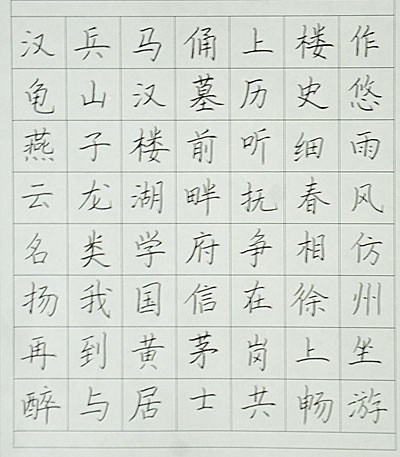 汉兵马俑上楼作
龟山汉墓历史悠
燕子楼前听细雨
云龙湖畔抚春风
名类学府争相仿
扬我国信在徐州
再到黄茅岗上坐
醉与居士共畅游